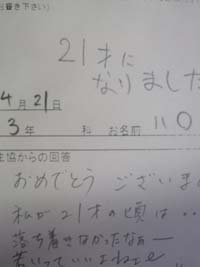 お書き下さい）
21才に
なりました
4月21日
3年 科 お名前 110
生協からの回答
おめでとう ございま
私が21才の頃は‥
落ち着きなかったなぁー
若いっていいよねぇ